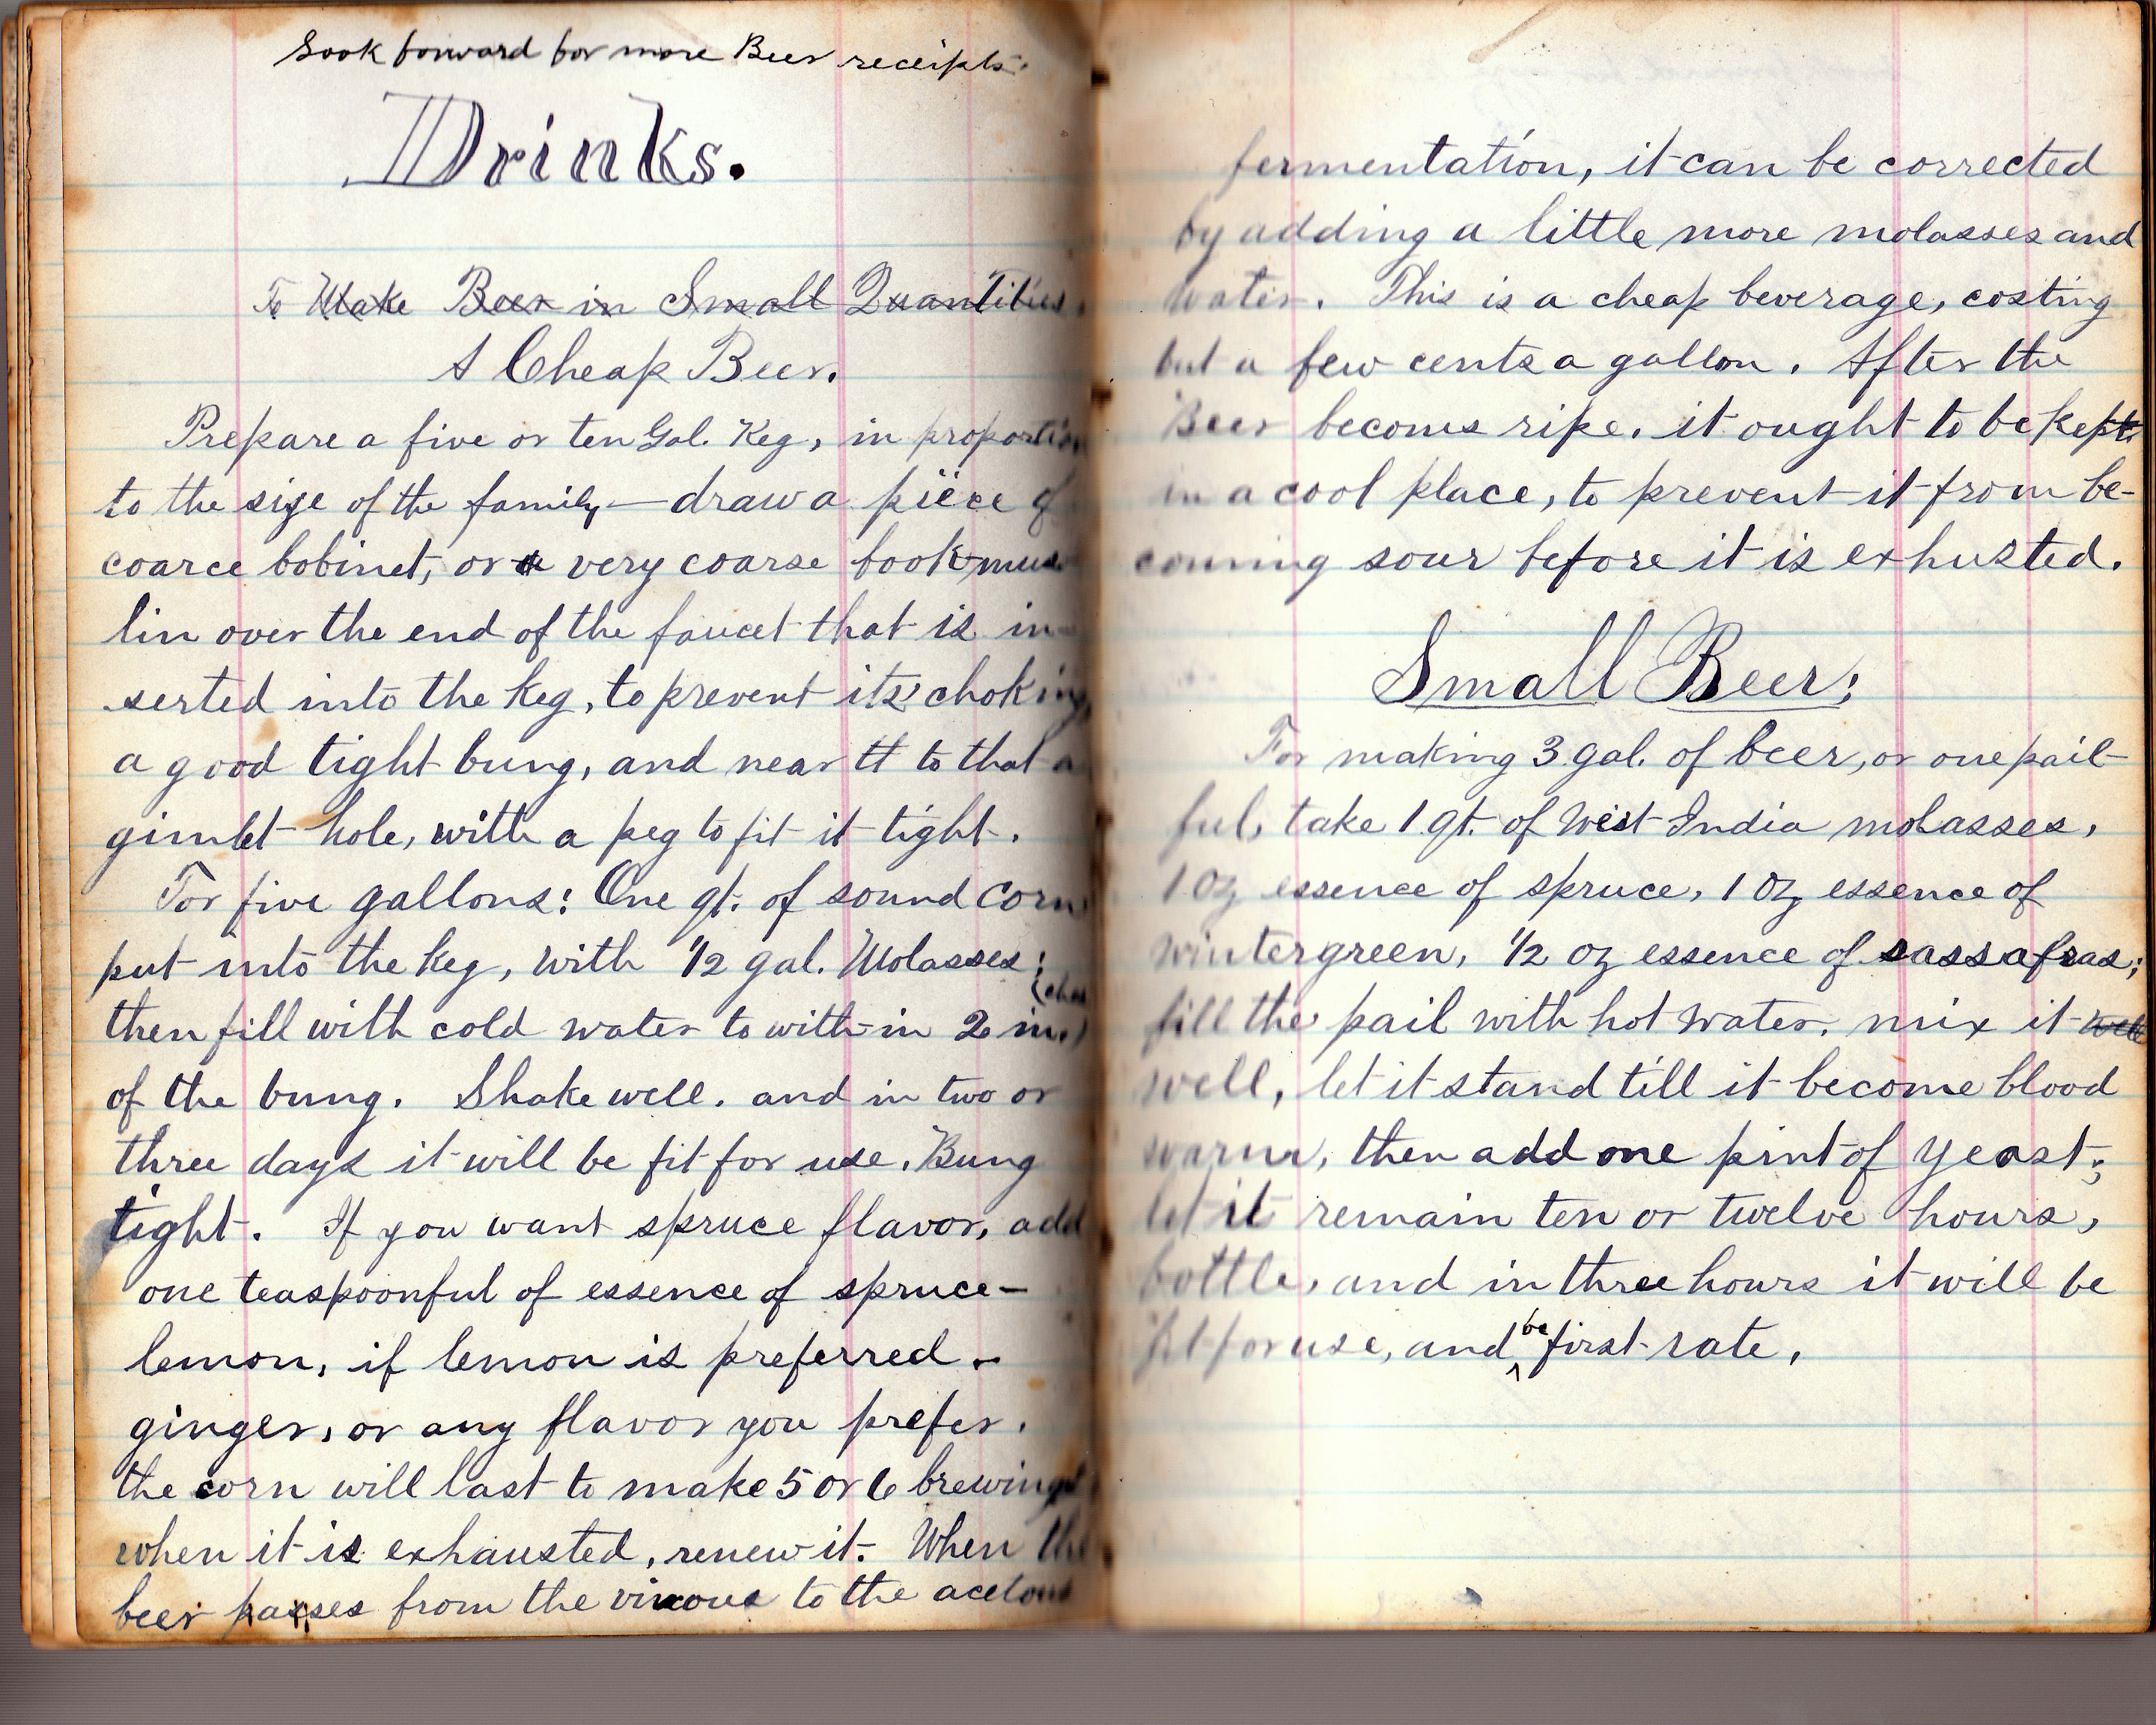 Look forward for more Beer receipts.
Drinks.
To Make Beer in Small Quantities.
A Cheap Beer.
Prepare a five or ten Gal. Keg, in proportion
to the size of the family,—draw a piece of
coarce bobinet, or a very coarse book-mus-
lin over the end of the faucet that is in-
serted into the keg, to prevent its choking
a good tight bung, and near tt to that a
gimlet hole, with a peg to fit it tight.
For five gallons: One qt. of sound corn
put into the keg, with 1/2 gal. Molasses;
then fill with cold water to with-in 2 in.
of the bung. Shake well. and in two or
three days it will be fit for use. Bung
tight. If you want spruce flavor, add
one teaspoonful of essence of spruce—
lemon, if lemon is preferred.
ginger, or any flavor you prefer.
the corn will last to make 5 or 6 brewings
when it is exhausted, renew it. When the
beer passes from the vinous to the acetous
fermentation, it can be corrected
by adding a little more molasses and
water. This is a cheap beverage, costing
but a few cents a gallon. After the
Beer becomes ripe. it ought to be kept
in a cool place, to prevent it from be-
coming sour before it is exhusted.
Small Beer;
For making 3 gal. of beer, or one pail-
ful, take 1 qt. of West India molasses,
1 oz essence of spruce, 1 oz essence of
wintergreen, 1/2 oz essence of sassafras;
fill the pail with hot water, mix it well
well, let it stand till it become blood
warm, then add one pint of yeast;
let it remain ten or twelve hours,
bottle, and in three hours it will be
fit for use, and be first-rate.